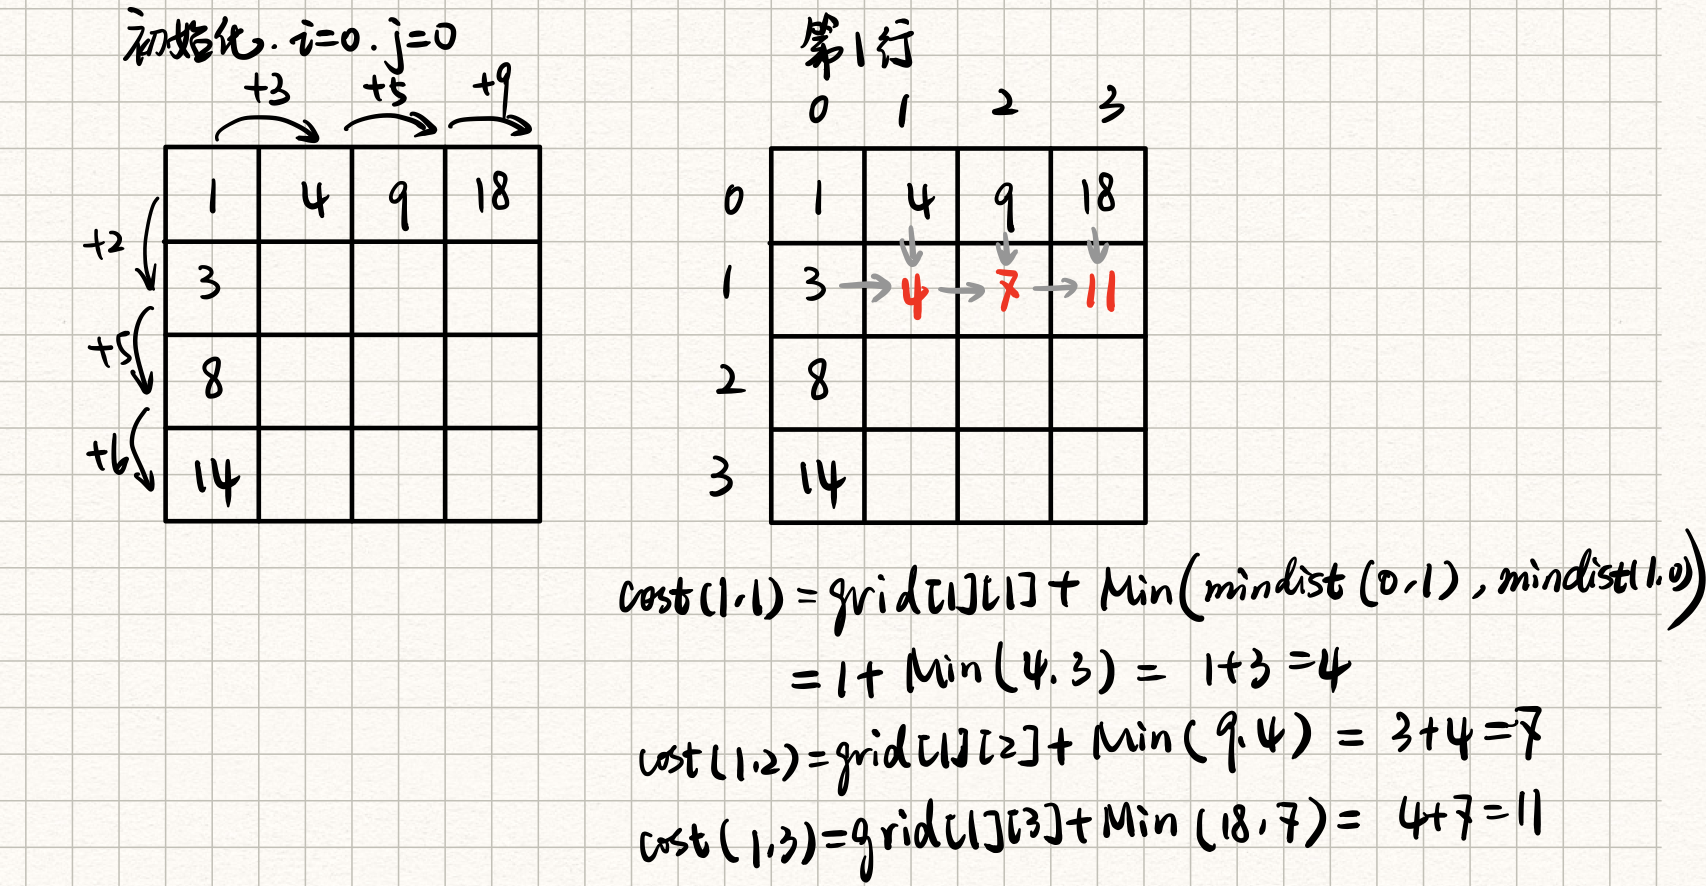 初始化. i=0. j=0
+3 +5 +9
1 4 9 18
+2
3
+5
8
+6
14
第1行
0 1 2 3
0 1 4 9 18
1 3 4 7 11
2 8
3 14
cost(1,1) = grid[1][1] + Min(mindist(0,1), mindist(1,0))
= 1 + Min(4.3) = 1+3=4
cost(1.2)=grid[1][2]+ Min(9.4) = 3+4=7
cost(1.3)=grid[1][3]+Min(18,7)= 4+7=11